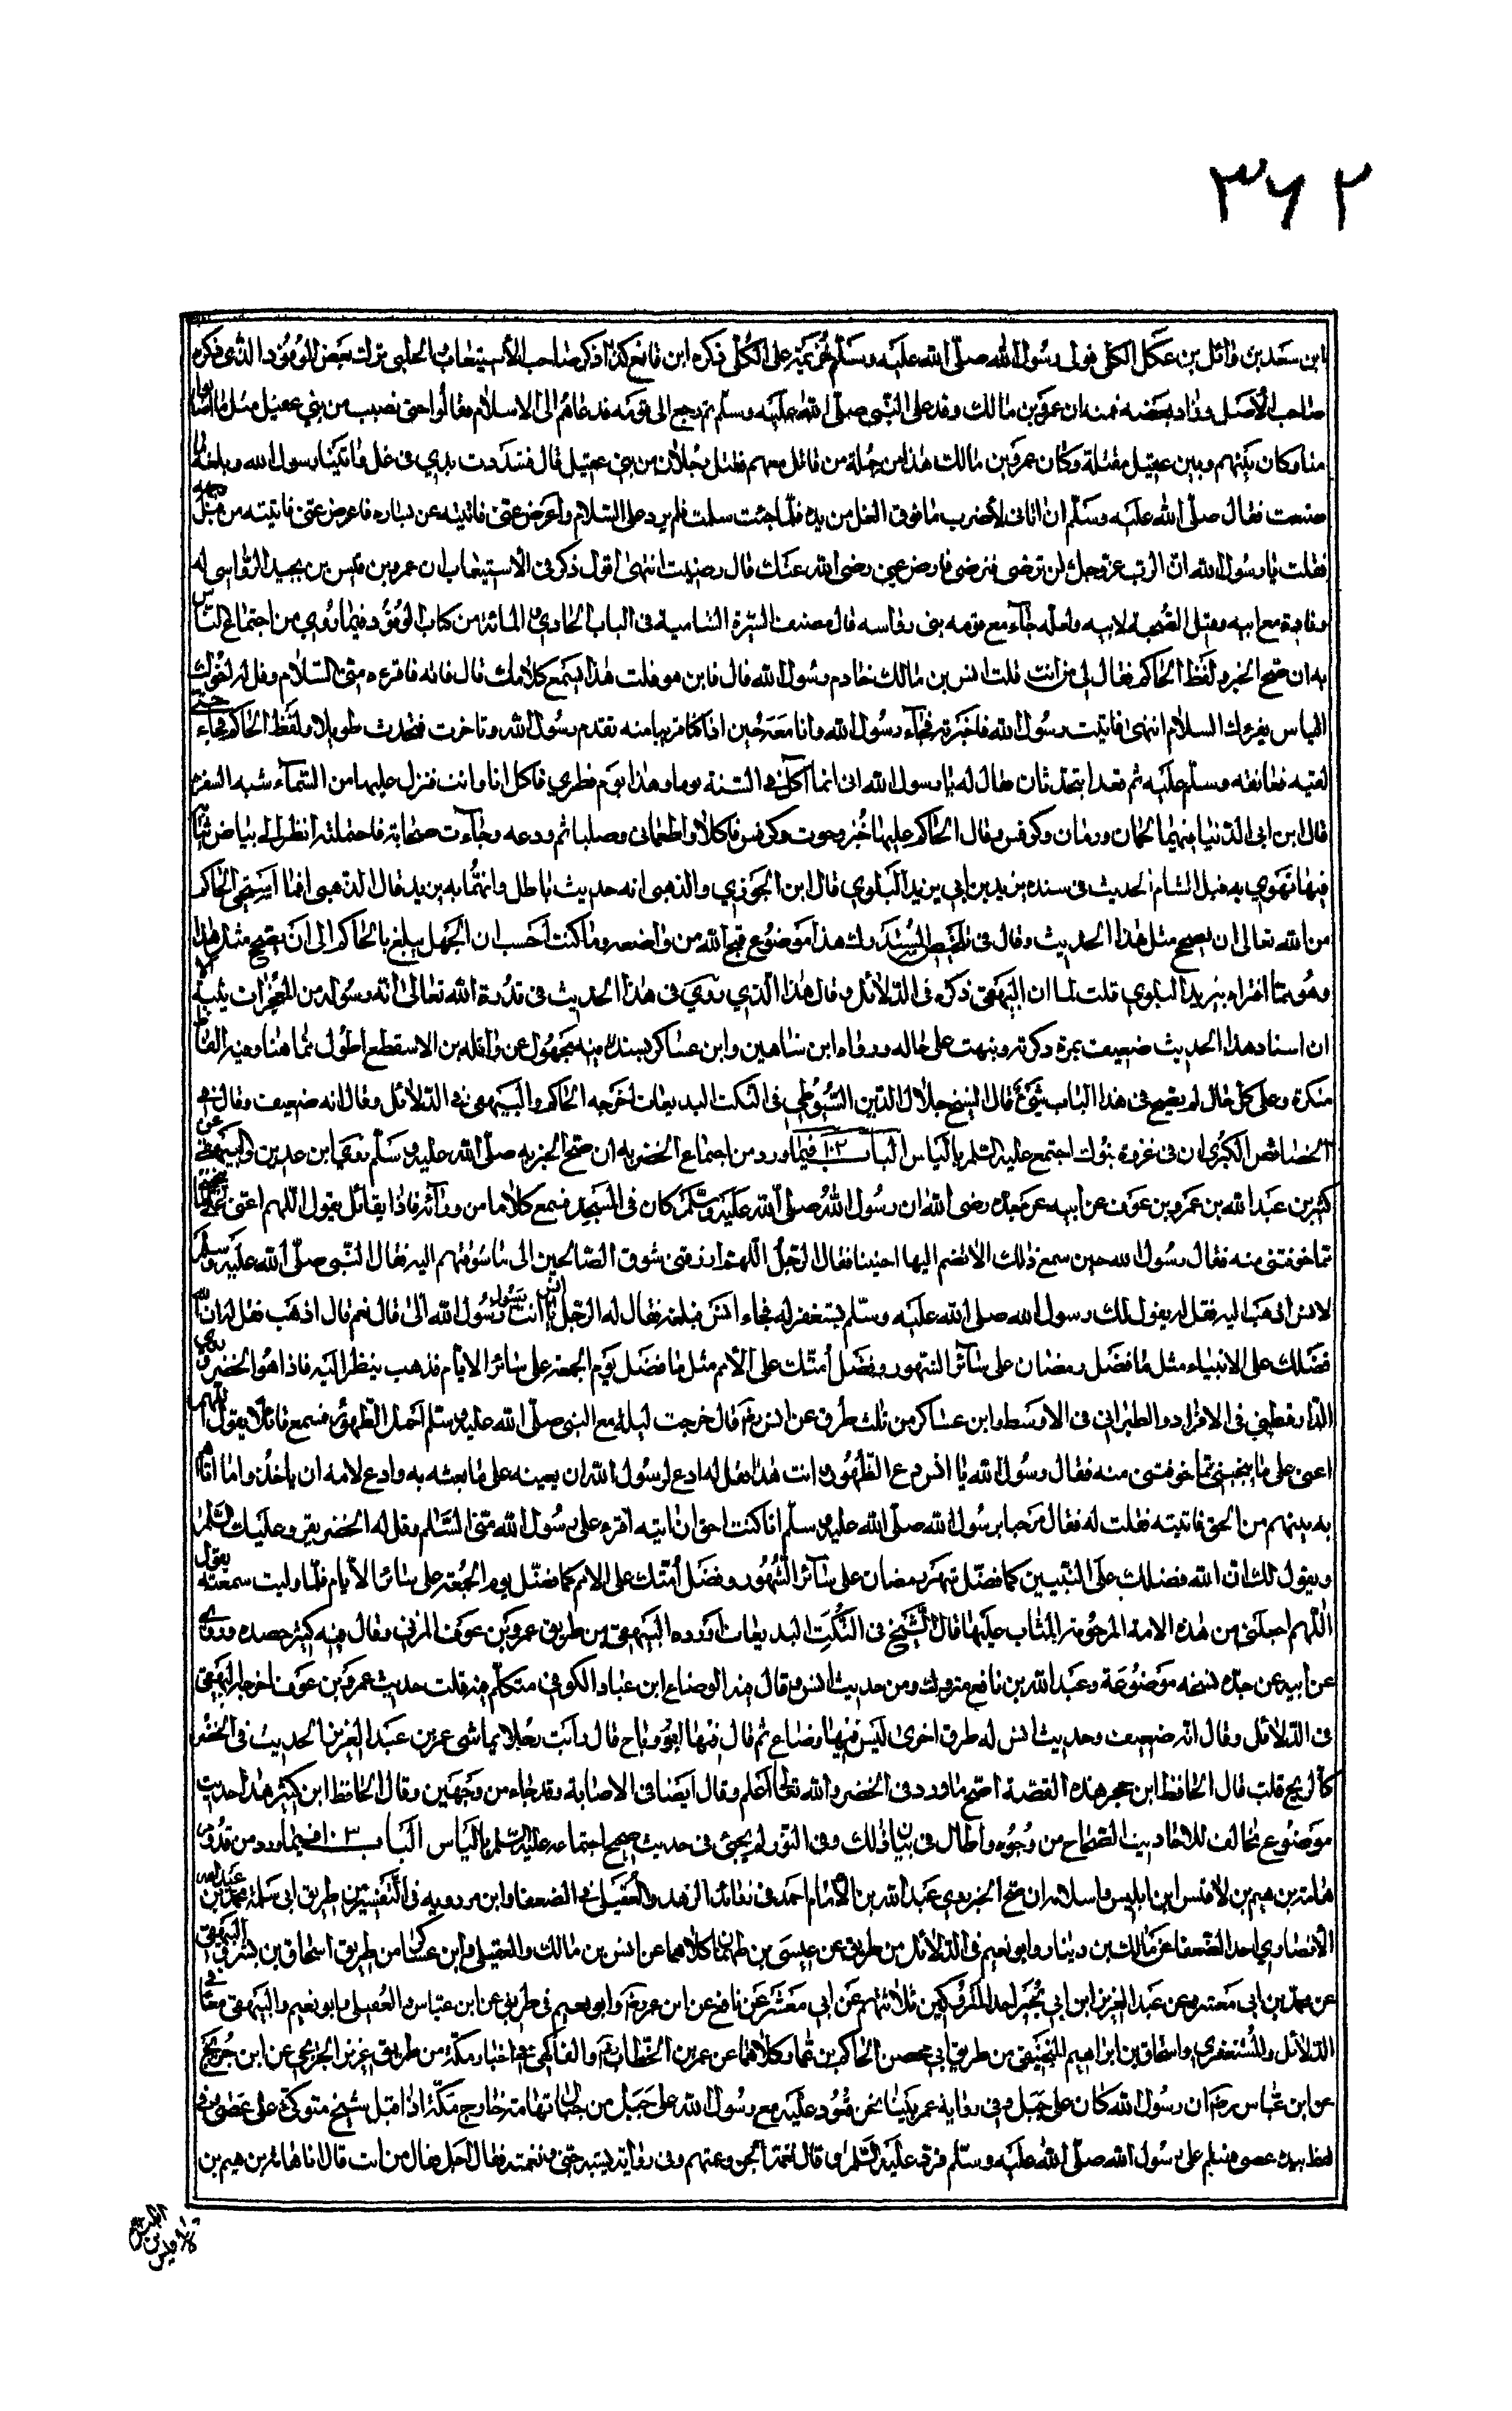 ٣٦٢
ابن سعد بن وائل بن عكل العكلي مولى رسول الله صلى الله عليه وسلم خزيمة على العكل ذكره ابن قانع كذا ذكر صاحب الأستيعاب الحلبي ترك بعض الوفود الذي ذكره
صاحب الأصل وزاد بعضه فمنه ان عمرو بن مالك وفد على النبي صلى الله عليه وسلم ثم رجع الى قومه فدعاهم الى الاسلام فقالوا حتى نصيب من بني عقيل مثل ما اصابوا
منا وكان بينهم وبين عقيل مقتلة وكان عمرو بن مالك هذا من جملة من قاتل معهم فقتل رجلان من بني عقيل قال فشددت يدي في غل واتيت رسول الله وبلغه ما
صنعت فقال صلى الله عليه وسلم ان اتاني لأضرب ما فوق الغل من يده فلما جئت سلمت فلم يرد على السلام واعرض عني فاتيته عن يساره فاعرض عني فاتيته من قبل وجهه
فقلت يا رسول الله ان الرب عز وجل لن ترضى فيرضى فارض عني رضي الله عنك قال رضيت انتهى اقول ذكر في الأستيعاب ان عمرو بن قيس بن بجيد الرواسي له
وفادة مع ابيه وقيل الصحبة لابيه ولعله جاء مع قومه بني رواسه قال مصنف السيرة الشامية في الباب الحادي والمائة من كتاب الوفود فيما روي من اجتماع الياس
به ان صح الخبر ولفظ الحاكم فقال لي من انت قلت انس بن مالك خادم رسول الله قال فاين هو قلت هذا يسمع كلامك قال فاته فاقرءه مني السلام وقل له اخوك
الياس يقرءك السلام انتهى فاتيت رسول الله فاخبرته فجاء رسول الله وانا معه حين اذا كنا قريبا منه تقدم رسول الله وتاخرت فتحدث طويلا ولفظ الحاكم فجاء حتى
لقيه فعانقه وسلم عليه ثم قعدا يتحدثان فقال له يا رسول الله اني انما آكل في السنة يوما وهذا يوم فطري فاكل انا وانت فنزل عليهما من السماء شبه السفره
قال ابن ابي الدنيا فيهما كمان ورمان وكرفس وقال الحاكم عليها خبز وحوت وكرفس فاكلا واطعماني وصليا ثم ودعه وجاءت سحابة فاحتملته انظر الى بياض ثيابه
فيها تهوي به قبل الشام الحديث في سنده يزيد بن ابي يزيد البلوي قال ابن الجوزي والذهبي انه حديث باطل واتهما به يزيد قال الذهبي اما استحيى الحاكم
من الله تعالى ان يصحح مثل هذا الحديث وقال في تلخيص المستدرك هذا موضوع قبح الله من واضعه وما كنت احسب ان الجهل يبلغ بالحاكم الى ان يصحح مثل هذا
وهو مما افتراه يزيد البلوي قلت اما ان البيهقي ذكره في الدلائل وقال هذا الذي روي في هذا الحديث في قدرة الله تعالى انه وسوله من المعجزات يشبه الا
ان اسناد هذا الحديث ضعيف بمرة ذكرته ونبهت على حاله ورواه ابن شاهين وابن عساكر بسند فيه مجهول عن واثلة بن الاسقع اطول مما هنا وفيه الفاظ
منكرة وعلى كل حال لم يصح في هذا الباب شيئ قال الشيخ جلال الدين السيوطي في النكت البديعات اخرجه الحاكم والبيهقي في الدلائل وقال انه ضعيف وقال في
الخصائص الكبرى ان في غزوة تبوك اجتمع عليه السلم بالياس الباب ١٠٢ فيما ورد من اجتماع الخضر به ان صح الخبر به صلى الله عليه وسلم روي ابن عدي والبيهقي عن
كثير بن عبد الله بن عمرو بن عوف عن ابيه عن جده رضي الله ان رسول الله صلى الله عليه وسلم كان في المسجد فسمع كلاما من ورائه فاذا بقائل يقول اللهم اعني على ما ينجيني
مما خوفتني منه فقال رسول الله حين سمع ذلك الا تضم اليها اختها فقال الرجل اللهم ارزقني شوق الصالحين الى ما شوقتهم اليه فقال النبي صلى الله عليه وسلم
لانس اذهب اليه فقل له يقول لك رسول الله صلى الله عليه وسلم تستغفر له فجاء انس فبلغه فقال له الرجل يا انس انت رسول رسول الله الي قال نعم قال اذهب فقل له ان الله
فضلك على الانبياء مثل ما فضل رمضان على سائر الشهور وفضل امتك على الأمم مثل ما فضل يوم الجمعة على سائر الايام فذهب ينظر اليه فاذا هو الخضر وروي
الدارقطني في الافراد والطبراني في الاوسط وابن عساكر من ثلث طرق عن انس رضه قال خرجت ليلة مع النبي صلى الله عليه وسلم احمل الطهور فسمع قائلا يقول اللهم
اعني على ما ينجيني مما خوفتني منه فقال رسول الله يا انس دع الطهور وائت هذا فقل له ادع لرسول الله ان يعينه على ما بعثه به وادع لامته ان ياخذوا ما اتاهم
به نبيهم من الحق فاتيته فقلت له فقال مرحبا برسول الله صلى الله عليه وسلم انا كنت احق ان اتيه اقره على رسول الله مني السلام وقل له الخضر يقرء عليك السلم
ويقول لك ان الله فضلك على النبيين كما فضل شهر رمضان على سائر الشهور وفضل امتك على الامم كما فضل يوم الجمعة على سائر الأيام فلما وليت سمعته يقول
اللهم اجعلني من هذه الامة المرحومة المثاب عليها قال الشيخ في النكت البديعات اورده البيهقي من طريق عمرو بن عوف المزني وقال فيه كثير صده وروى
عن ابيه عن جده نسخه موضوعة وعبد الله بن نافع متروك ومن حديث انس وقال فيه الوضاع ابن عباد الكوفي متكلم فيه قلت حديث عمرو بن عوف اخرجه البيهقي
في الدلائل وقال انه ضعيف وحديث انس له طرق اخرى ليس فيها وضاع ثم قال فيها ابو وياح قال رأيت رجلا يماشي عمر بن عبد العزيز الحديث في الخضر
كالريح قلت قال الحافظ ابن حجر هذه القصة اصح ما ورد في الخضر والله تعالى اعلم وقال ايضا في الاصابة وقد جاء من وجهين وقال الحافظ ابن كثير هذا حديث
موضوع مخالف للاحاديث الصحاح من وجوه واطال في بيان ذلك وفي النور لم يجئ في حديث صحيح اجتماعه عليه السلم بالياس الباب ١٠٣ فيما ورد من قدوم
هامة بن هيم بن لاقيس ابن ابليس واسلامه ان صح الخبر روي عبد الله بن الأمام احمد في زوائد الزهد والعقيلي في الضعفا وابن مردويه في التفسير من طريق ابي سلمة محمد بن عبد الله
الأنصاري احد الضعفا عن مالك بن دينار وابو نعيم في الدلائل من طريق عن عيسى بن طهمان كلاهما عن انس بن مالك والعقيلي وابن عساكر من طريق اسحاق بن بشر والبيهقي
عن محمد بن ابي معشر وعن عبد العزيز ابن ابي بجير احد المتروكين ثلاثتهم عن ابي معشر عن نافع عن ابن عمر رضه وابو نعيم في طريق عن ابن عباس والعقيلي وابو نعيم والبيهقي معا في
الدلائل والمستغفري واسحاق بن ابراهيم المنجنيقي من طريق ابي محصن الحاكم بن عمار وكلاهما عن عمر بن الخطاب رضه والفاكهي في اخبار مكة من طريق عزيز الجريجي عن ابن جريج
عن ابن عباس رضه ان رسول الله كان على جبل وفي رواية عمر بينا نحن قعود عليه مع رسول الله على جبل من جبال تهامة خارج مكة اذا اقبل شيخ متوكئ على عصى وفي
لفظ بيده عصى فسلم على رسول الله صلى الله عليه وسلم فرد عليه السلم وقال نغمة الجن وغمتهم وفي رواية مشية جني ونغمته فقال اجل فقال من انت قال انا هامة بن هيم بن